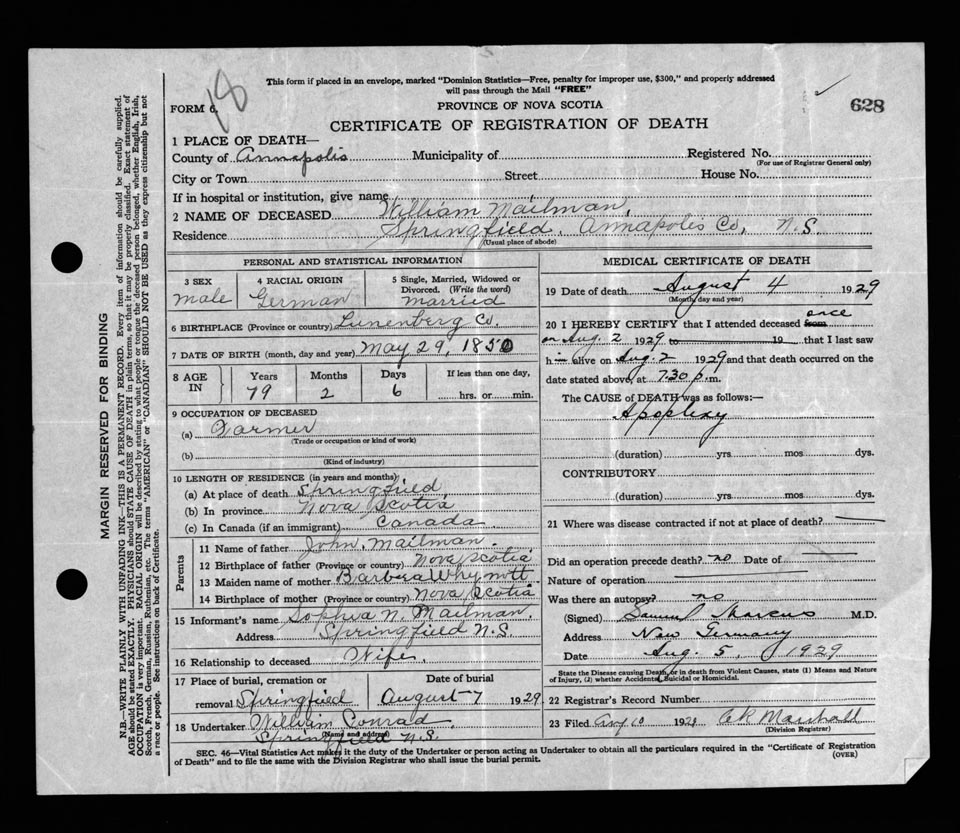 This form if placed in an envelope, marked "Dominion Statistics—Free, penalty for improper use, $300," and properly addressed
will pass through the Mail "FREE"
FORM 6.
18
PROVINCE OF NOVA SCOTIA
628
CERTIFICATE OF REGISTRATION OF DEATH
1 PLACE OF DEATH—
County of Annapolis Municipality of Registered No.
(For use of Registrar General only)
City or Town Street House No.
If in hospital or institution, give name
2 NAME OF DECEASED William Mailman,
Residence Springfield, Annapolis Co, N.S
(Usual place of abode)
PERSONAL AND STATISTICAL INFORMATION
3 SEX male
4 RACIAL ORIGIN German
5 Single, Married, Widowed or Divorced. (Write the word) married
6 BIRTHPLACE (Province or country) Lunenberg Co.
7 DATE OF BIRTH (month, day and year) May 29, 1850
8 AGE IN Years 79 Months 2 Days 6 If less than one day, hrs. or min.
9 OCCUPATION OF DECEASED
(a) Farmer
(Trade or occupation or kind of work)
(b)
(Kind of industry)
10 LENGTH OF RESIDENCE (in years and months)
(a) At place of death Springfield
(b) In province Nova Scotia
(c) In Canada (if an immigrant) Canada
Parents
11 Name of father John Mailman.
12 Birthplace of father (Province or country) Nova Scotia
13 Maiden name of mother Barbera Whynott
14 Birthplace of mother (Province or country) Nova Scotia
15 Informant's name Sophia N. Mailman
Address Springfield N.S.
16 Relationship to deceased Wife.
17 Place of burial, cremation or removal Springfield
Date of burial August 7 1929
18 Undertaker William Conrad
(Name and address)
Springfield N.S.
MEDICAL CERTIFICATE OF DEATH
19 Date of death August 4 1929
(Month, day and year)
20 I HEREBY CERTIFY that I attended deceased from once
on Aug. 2 1929 to 19 that I last saw
h alive on Aug. 2 1929 and that death occurred on the
date stated above, at 7.30 p.m.
The CAUSE of DEATH was as follows:—
Apoplexy
(duration) yrs mos dys.
CONTRIBUTORY
(duration) yrs mos dys.
21 Where was disease contracted if not at place of death?
Did an operation precede death? no Date of
Nature of operation
Was there an autopsy? no
(Signed) Samuel Marcus M.D.
Address New Germany
Date Aug. 5 1929
State the Disease causing Death, or in death from Violent Causes, state (1) Means and Nature
of Injury, (2) whether Accidental, Suicidal or Homicidal.
22 Registrar's Record Number
23 Filed Aug 10 1929 C R Marshall
(Division Registrar)
SEC. 46—Vital Statistics Act makes it the duty of the Undertaker or person acting as Undertaker to obtain all the particulars required in the "Certificate of Registration
of Death" and to file the same with the Division Registrar who shall issue the burial permit.
(OVER)
MARGIN RESERVED FOR BINDING
N.B.—WRITE PLAINLY WITH UNFADING INK—THIS IS A PERMANENT RECORD. Every item of information should be carefully supplied.
AGE should be stated EXACTLY. PHYSICIANS should STATE CAUSE OF DEATH in plain terms, so that it may be properly classified. Exact statement of
OCCUPATION is very important. RACIAL ORIGIN will be described by stating to what people or tongue the deceased person belonged, whether English, Irish,
Scotch, French, German, Russian, Ruthenian, etc. The terms "AMERICAN" or "CANADIAN" SHOULD NOT BE USED as they express citizenship but not
a race or people. See instructions on back of Certificate.